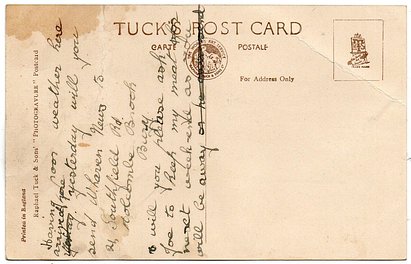 TUCK'S POST CARD
CARTE POSTALE
For Address Only
Raphael Tuck & Sons' "PHOTOGRAVURE" Postcard
Printed in England
Having poor weather here
arrived
yesterday will you
send Whaven News to
21 Southfield Rd
Holcombe Brook
Bury
will you please ask
Joe to keep my meat for
next week-end as I
will be away